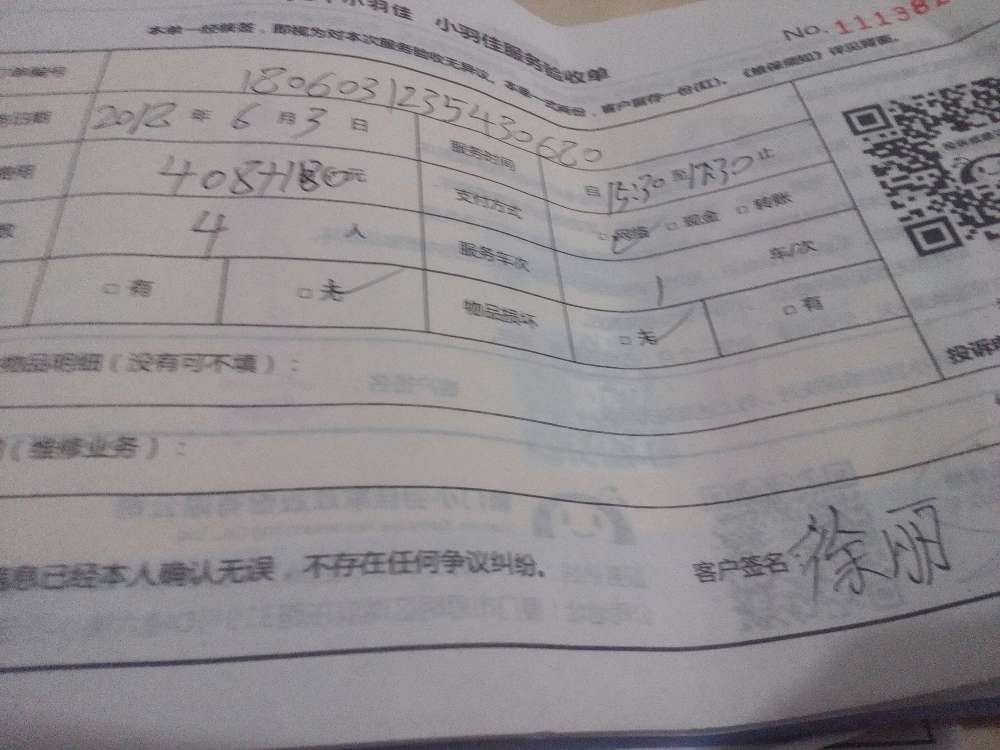 小羽佳 小羽佳服务验收单
No.11138
本单一经续签，即视为对本次服务验收无异议。本单一式两份，客户留存一份(红)。《维保须知》详见背面。
编号 180603123545430620
日期 2018 年 6 月 3 日 服务时间 自 15:30 至 17:30 止
费用 408+180元 支付方式 □ 网络 □ 现金 □ 转账
数 4 人 服务车次 1 车/次
□ 有 □ 无 物品损坏 □ 无 □ 有
物品明细（没有可不填）：
投诉
（维修业务）：
信息已经本人确认无误，不存在任何争议纠纷。 客户签名 徐丽